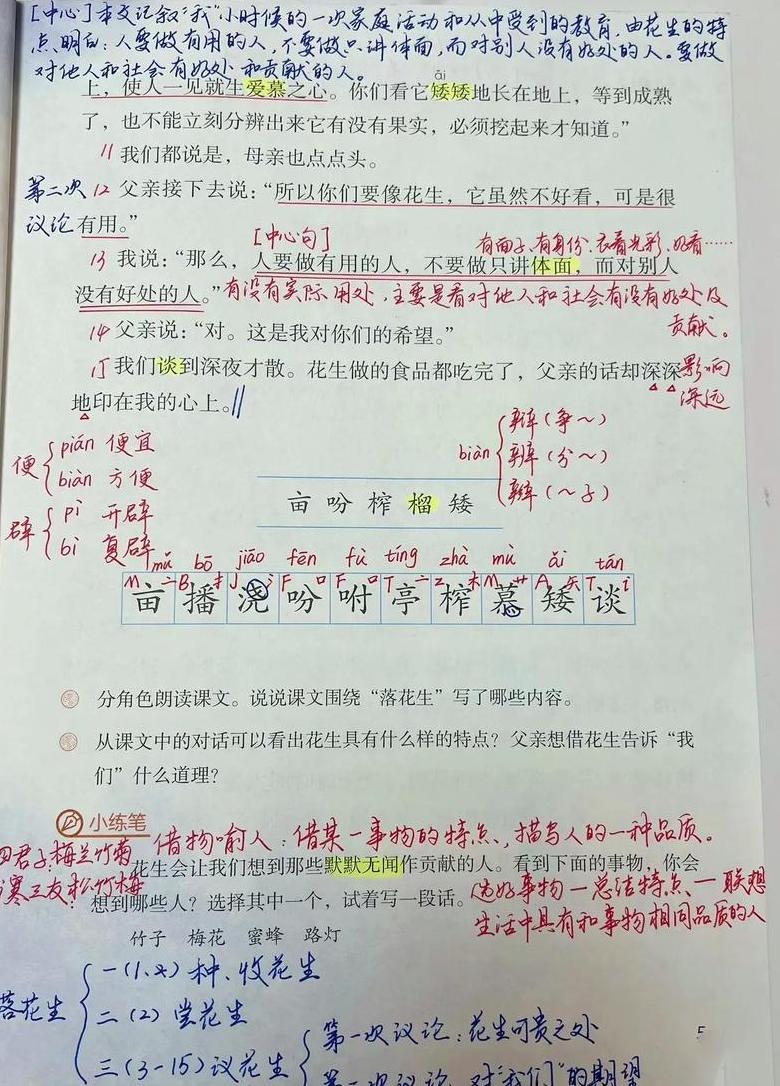 [中心]本文记叙“我”小时候的一次家庭活动和从中受到的教育，由花生的特
点明白：人要做有用的人，不要做只讲体面，而对别人没有好处的人。要做
对他人和社会有好处和贡献的人。
上，使人一见就生爱慕之心。你们看它矮矮地长在地上，等到成熟
ǎi
了，也不能立刻分辨出来它有没有果实，必须挖起来才知道。”
11 我们都说是，母亲也点点头。
第二次 12 父亲接下去说：“所以你们要像花生，它虽然不好看，可是很
议论 有用。”
[中心句] 有面子、有身份、衣着光彩、好看……
13 我说：“那么，人要做有用的人，不要做只讲体面，而对别人
没有好处的人。” 有没有实际用处，主要是看对他人和社会有没有好处及
贡献。
14 父亲说：“对。这是我对你们的希望。”
15 我们谈到深夜才散。花生做的食品都吃完了，父亲的话却深深 影响
地印在我的心上。 深远
便 pián 便宜
biàn 方便
辟 pì 开辟
bì 复辟
biàn 辩（争～）
辨（分～）
辫（～子）
亩 吩 榨 榴 矮
mǔ bō jiāo fēn fù tíng zhà mù ǎi tán
M 亠 B 扌 J 氵 F 口 F 口 T 亠 Z 木 M 艹 A 矢 T 讠
亩 播 浇 吩 咐 亭 榨 慕 矮 谈
分角色朗读课文。说说课文围绕“落花生”写了哪些内容。
从课文中的对话可以看出花生具有什么样的特点？父亲想借花生告诉“我
们”什么道理？
小练笔
借物喻人：借某一事物的特点，描写人的一种品质。
四君子：梅兰竹菊
花生会让我们想到那些默默无闻作贡献的人。看到下面的事物，你会
寒三友 松竹梅
想到哪些人？选择其中一个，试着写一段话。
选好事物一总结特点一联想
生活中具有和事物相同品质的人
竹子 梅花 蜜蜂 路灯
落花生
一（1.2）种、收花生
二（2）尝花生
三（3-15）议花生
第一次议论：花生可贵之处
第二次议论：对“我们”的期望
5